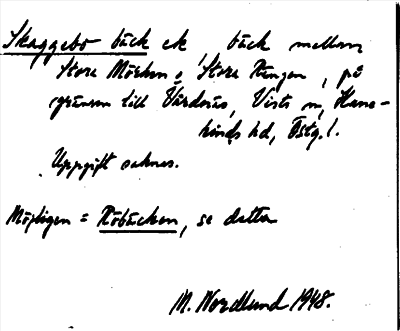 Skaggebo bäck ek, bäck mellan
Stora Mörken o. Stora Rängen, på
gränsen till Vårdnäs, Vists sn, Hane-
kinds hd, Östg. l.
Uppgift saknas.
Möjligen = Röbäcken, se detta
M. Nordlund 1948.